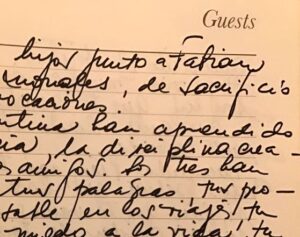 Guests
hijos junto a Fabian
morales, de sacrificio
ocaciones.
han aprendido
la disciplina crea-
amigos. los tres han
tus palabras, tus pro-
en los viajes, tu
a la vida, tu